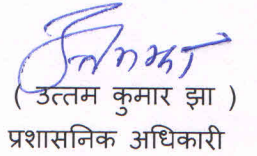 ( उत्तम कुमार झा )
प्रशासनिक अधिकारी